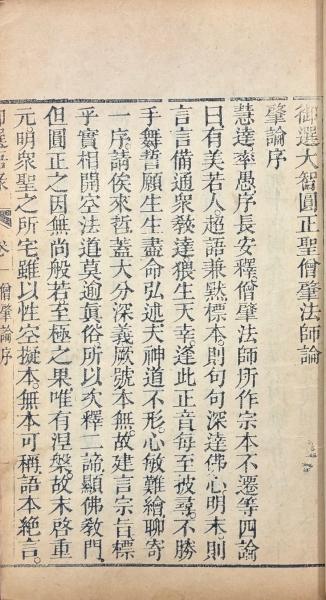 御選大智圓正聖僧肇法師論
肇論序
慧達率愚序長安釋僧肇法師所作宗本不遷等四論
曰有美若人超語兼默標本則句句深達佛心明末則
言言備通衆教達猥生天幸逢此正音每至披尋不勝
手舞誓願生生盡命弘述夫神道不形心敏難繪聊寄
一序請俟來哲蓋大分深義厥號本無故建言宗旨標
乎實相開空法道莫逾真俗所以次釋二諦顯佛教門
但圓正之因無尚般若至極之果唯有涅槃故末啓重
元明衆聖之所宅雖以性空擬本無本可稱語本絕言
卷一 僧肇論序